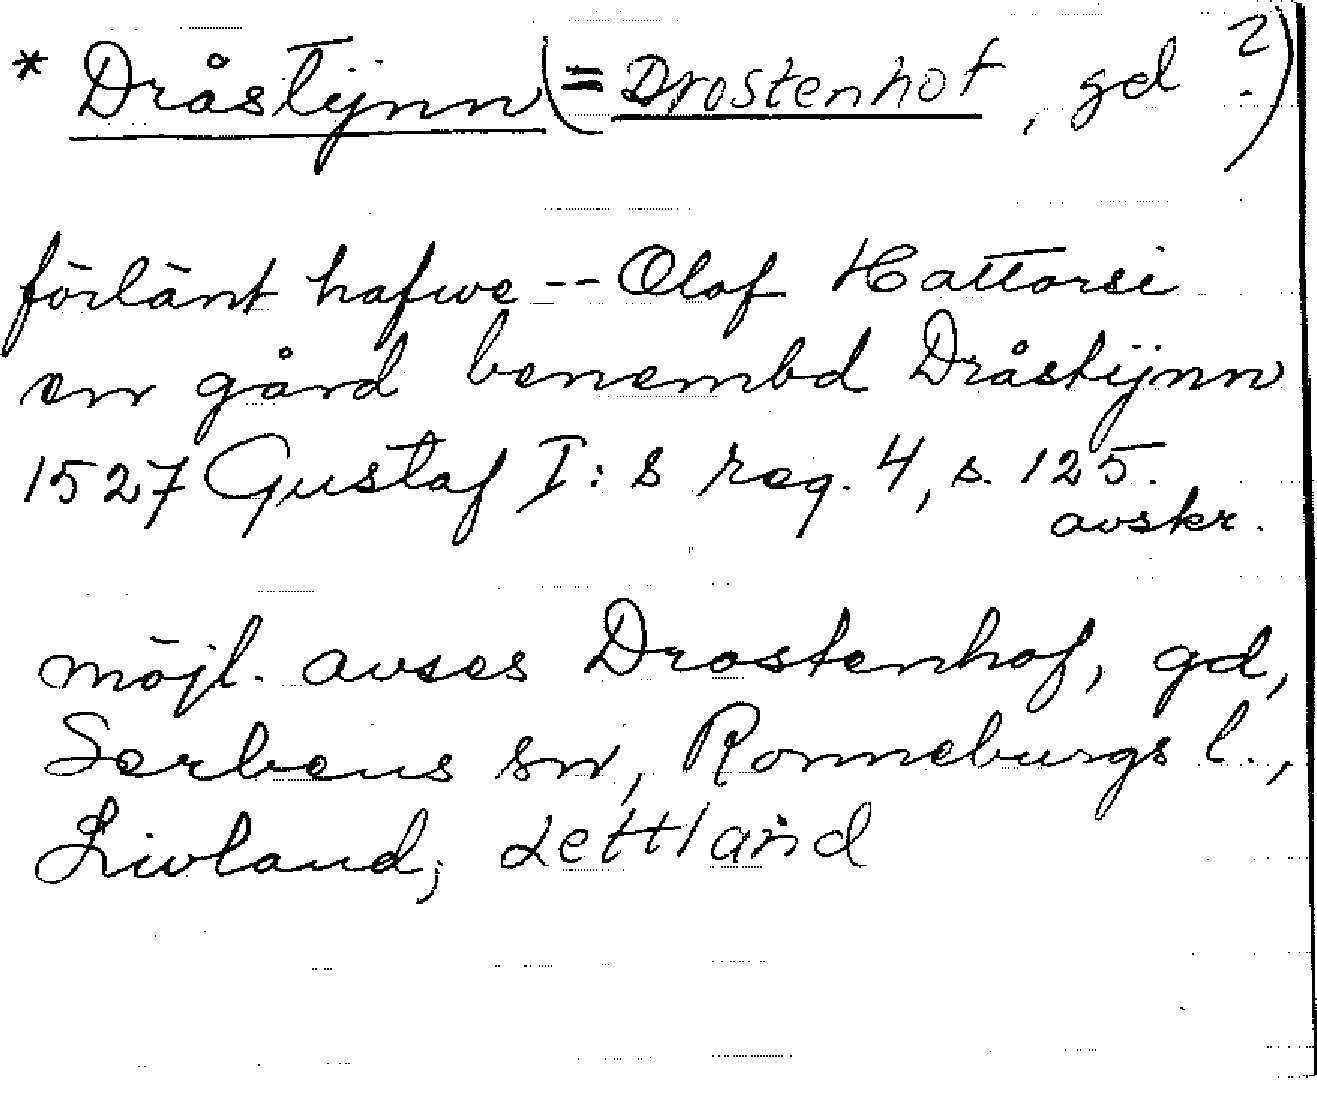 * Dråstijnn (= Drostenhof, gd ?)
förlänt hafwe -- Olaf Hattorsi
en gård benembd Dråstijnn
1527 Gustaf I:s reg. 4, s. 125.
avskr.
möjl. avses Drostenhof, gd,
Serbens sn, Ronneburgs l.,
Livland, Lettland